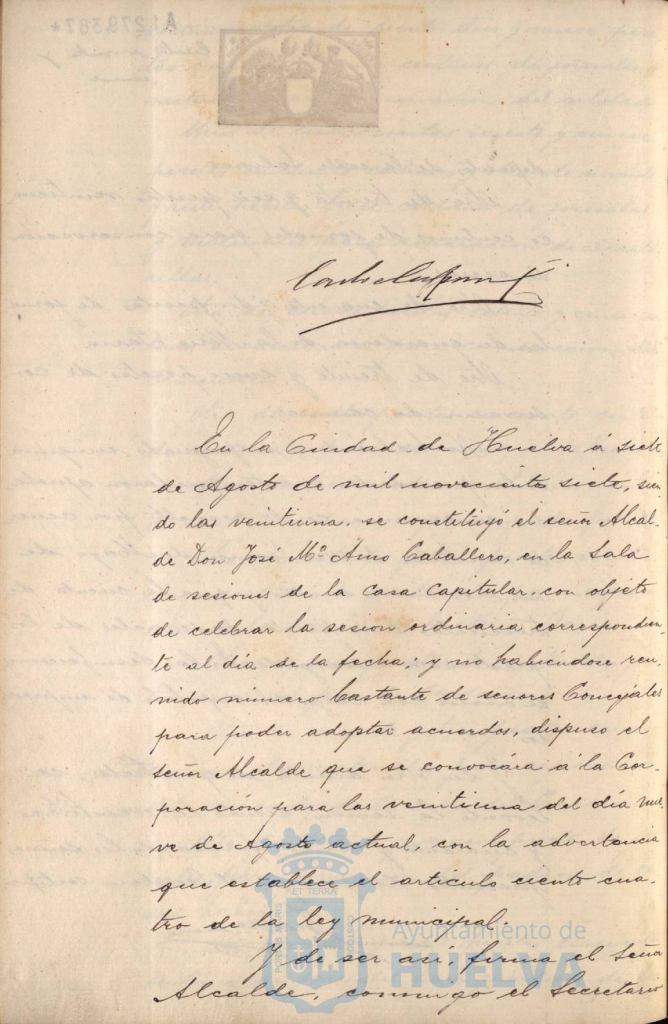 En la Ciudad de Huelva á siete
de Agosto de mil novecientos siete, sien
do las veintiuna. se constituyó el señor Alcal-
de Don José Mª Amo Caballero, en la Sala
de sesiones de la Casa Capitular, con objeto
de celebrar la sesion ordinaria correspondien
te al día de la fecha; y no habiéndose reu-
nido número bastante de señores Concejales
para poder adoptar acuerdos, dispuso el
señor Alcalde que se convocára á la Cor-
poración para las veintiuna del día nue-
ve de Agosto actual, con la advertencia
que establece el artículo ciento cua
tro de la ley municipal.
Y de ser así, firma el Señor
Alcalde, conmigo el Secretario
Ayuntamiento de
HUELVA